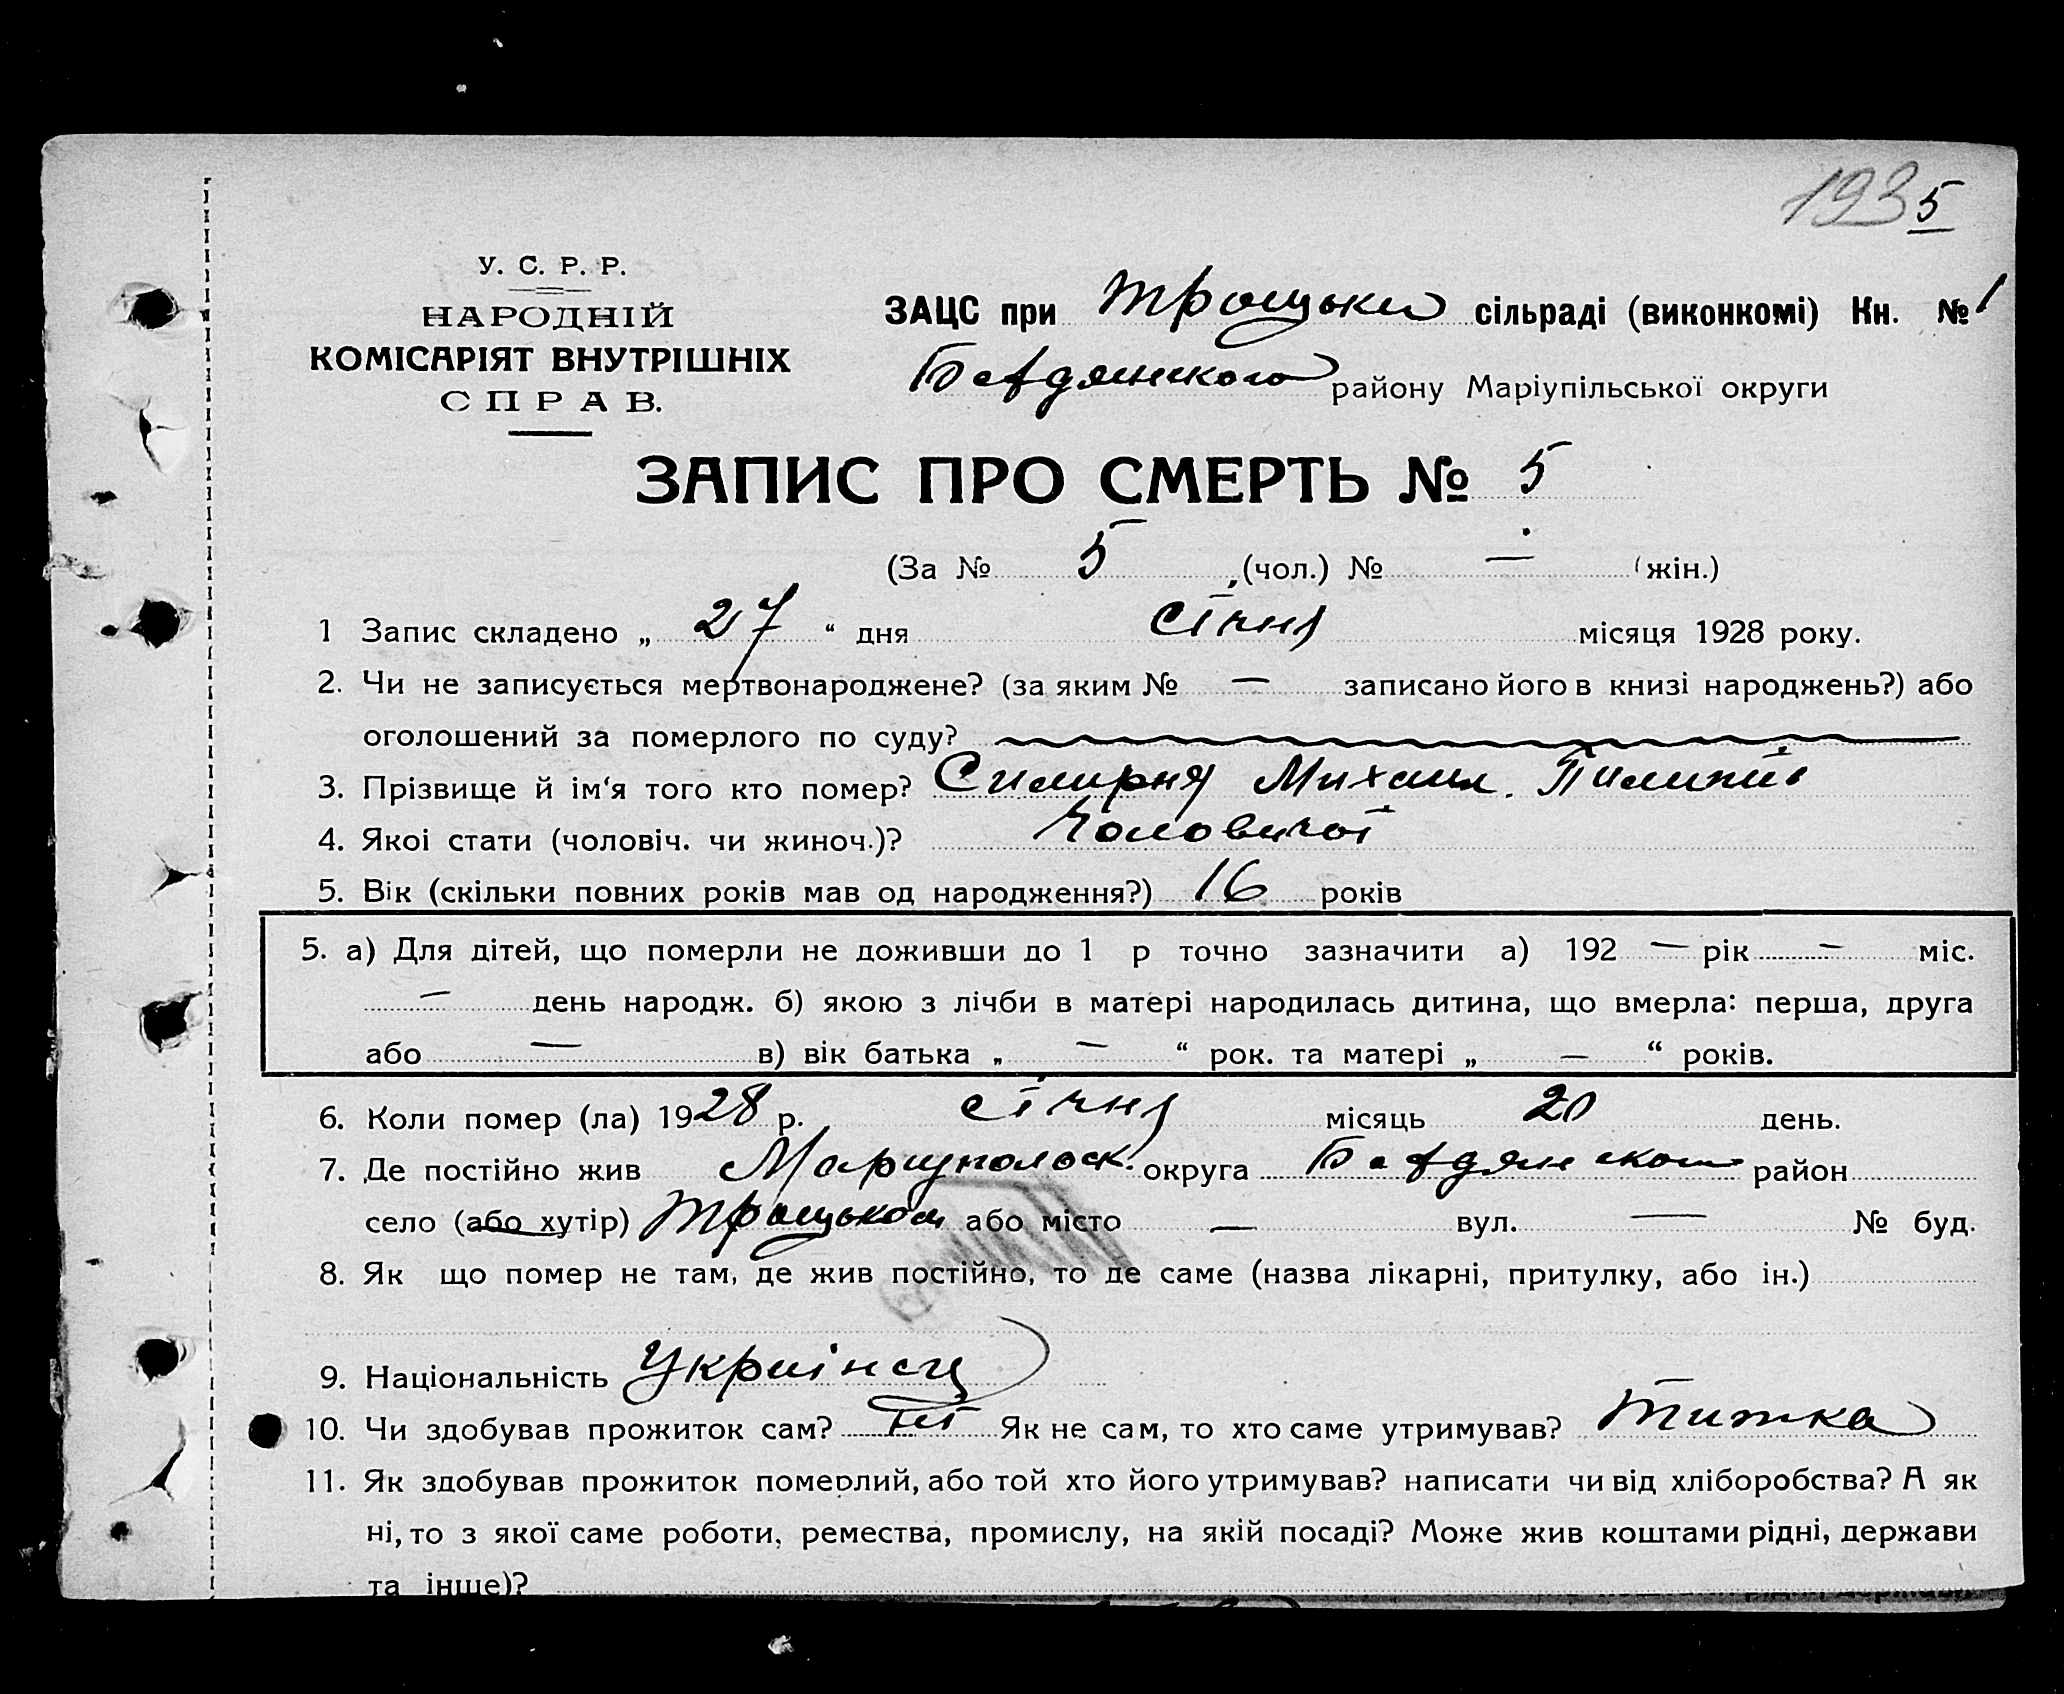 1935
У. С. Р. Р.
НАРОДНІЙ
КОМІСАРІЯТ ВНУТРІШНІХ
СПРАВ.
ЗАЦС при Троцькій сільраді (виконкомі) Кн. № 1
району Маріупільської округи
ЗАПИС ПРО СМЕРТЬ № 5
(За № 5, (чол.) № — (жін.)
1 Запис складено „ 27 “ дня січня місяця 1928 року.
2. Чи не записується мертвонароджене? (за яким № — записано його в книзі народжень?) або
оголошений за померлого по суду?
3. Прізвище й ім‘я того кто помер? Михаил
4. Якоі стати (чоловіч. чи жиноч.)? Чоловичої
5. Вік (скільки повних років мав од народження?) 16 років
5. а) Для дітей, що померли не доживши до 1 р точно зазначити а) 192 — рік — міс.
— день народж. б) якою з лічби в матері народилась дитина, що вмерла: перша, друга
або — в) вік батька „ — “ рок. та матері „ — “ років.
6. Коли помер (ла) 1928 р. січня місяць 20 день.
7. Де постійно жив округа район
село (або хутір) або місто — вул. — № буд.
8. Як що помер не там, де жив постійно, то де саме (назва лікарні, притулку, або ін.)
9. Національність Українец
10. Чи здобував прожиток сам? Ні Як не сам, то хто саме утримував?
11. Як здобував прожиток померлий, або той хто його утримував? написати чи від хліборобства? А як
ні, то з якої саме роботи, ремества, промислу, на якій посаді? Може жив коштами рідні, держави
та інше)?